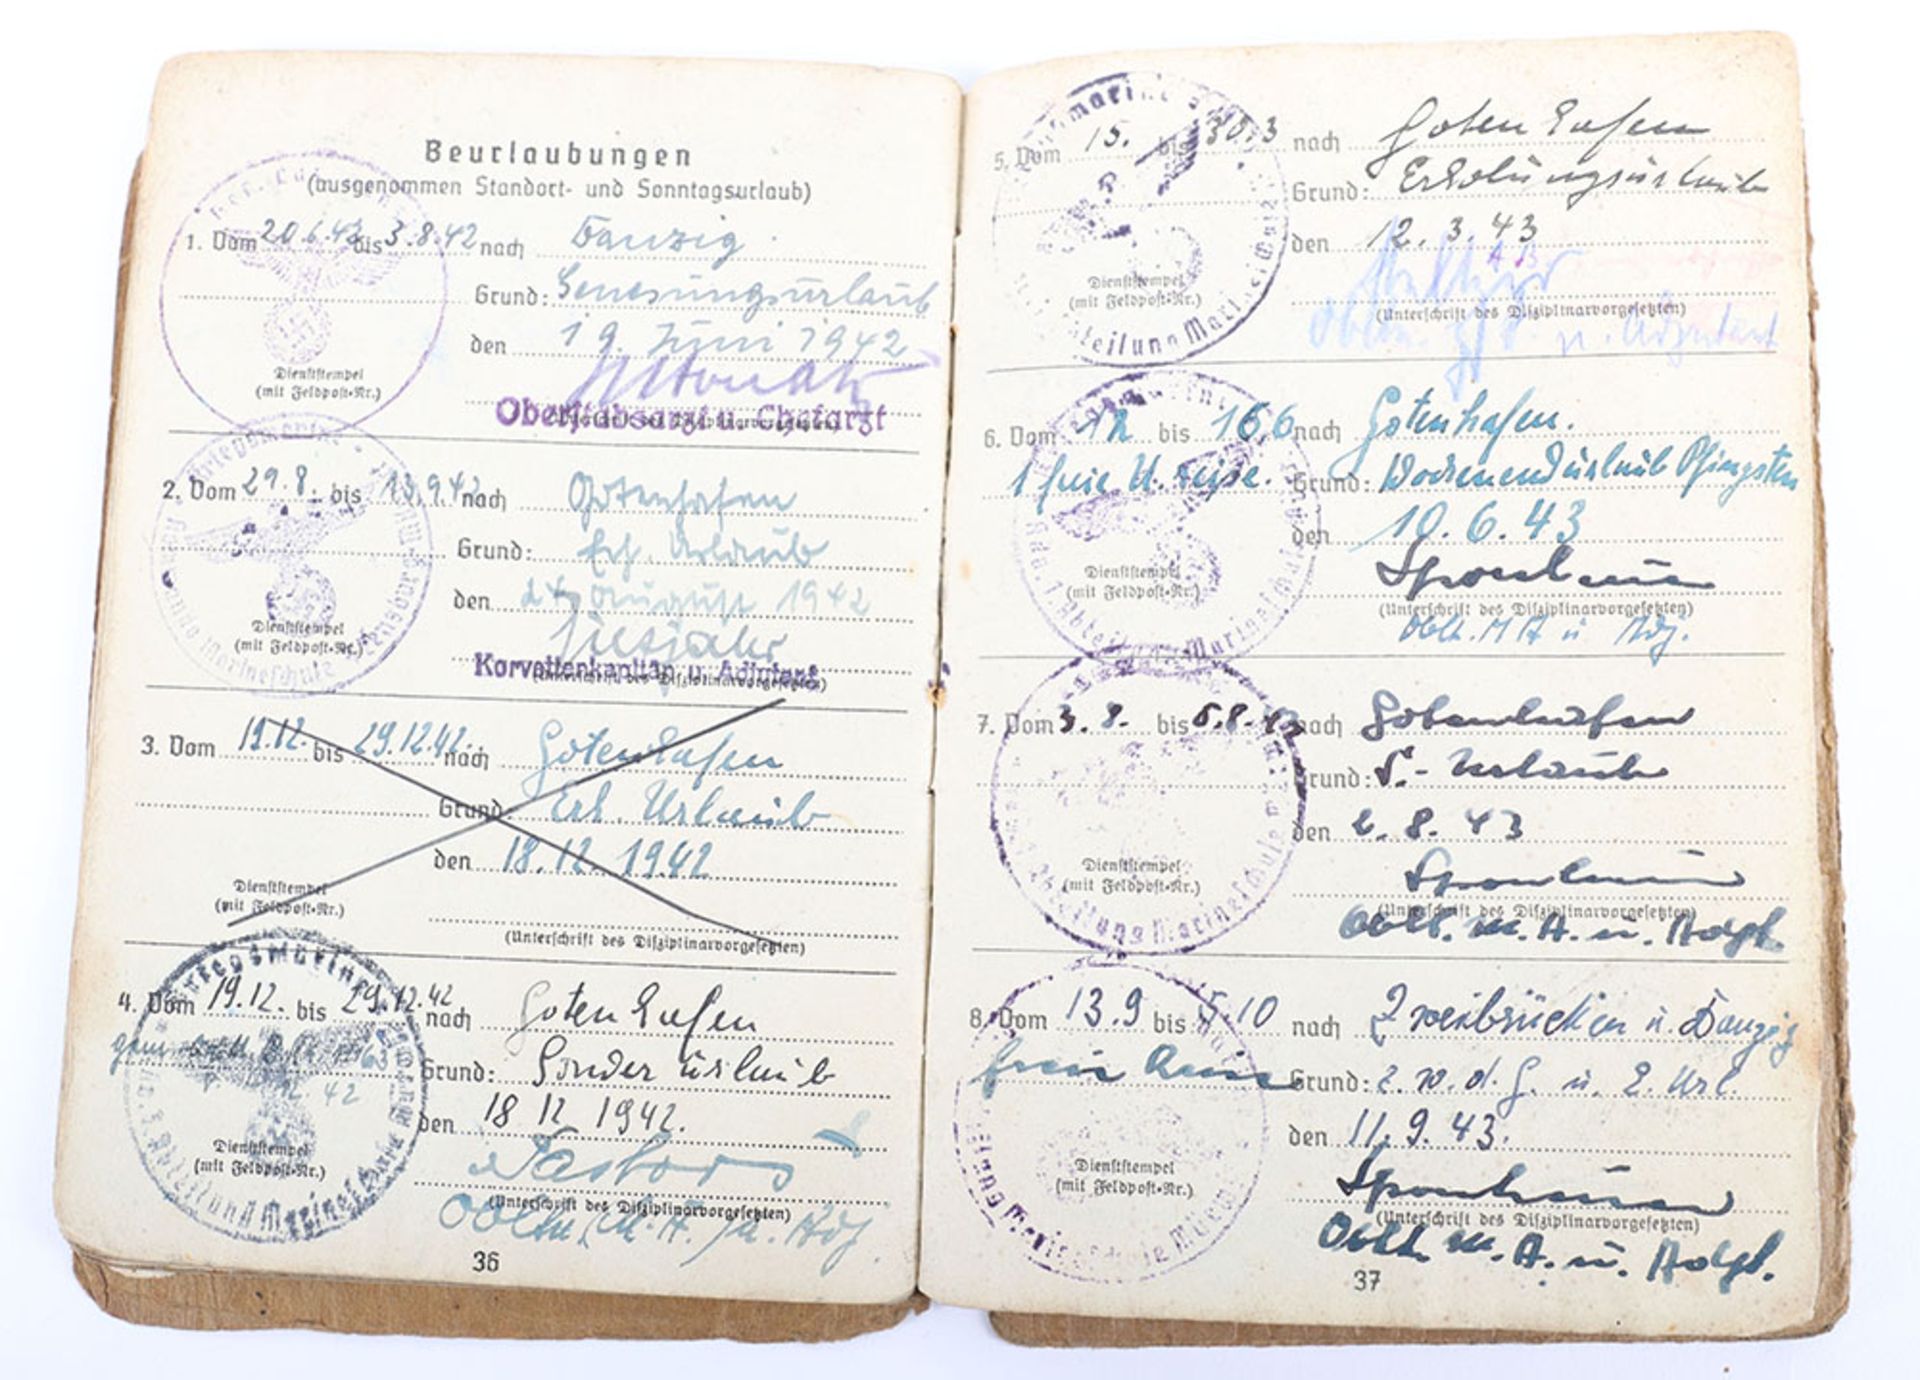 Beurlaubungen
(ausgenommen Standort- und Sonntagsurlaub)
1. Vom 20.6.42 bis 3.8.42 nach Danzig
Grund: Genesungsurlaub
den 19. Juni 1942
Dienststempel
(mit Feldpost-Nr.)
Oberstabsarzt u. Chefarzt
(Unterschrift des Disziplinarvorgesetzten)
2. Vom 29.8. bis 13.9.42 nach Gotenhafen
Grund: Erh. Urlaub
den 24. August 1942
Dienststempel
(mit Feldpost-Nr.)
Korvettenkapitän u. Adjutant
(Unterschrift des Disziplinarvorgesetzten)
3. Vom 19.12. bis 29.12.42. nach Gotenhafen
Grund: Erh. Urlaub
den 18.12.1942
Dienststempel
(mit Feldpost-Nr.)
(Unterschrift des Disziplinarvorgesetzten)
4. Vom 19.12. bis 29.12.42 nach Gotenhafen
Grund: Sonderurlaub
den 18 12 1942.
Dienststempel
(mit Feldpost-Nr.)
(Unterschrift des Disziplinarvorgesetzten)
Obltn. (M.A.) u. Adj.
36
5. Vom 15. bis 30.3 nach Gotenhafen
Grund: Erholungsurlaub
den 12.3.43
Dienststempel
(mit Feldpost-Nr.)
(Unterschrift des Disziplinarvorgesetzten)
u. Adjutant
Abteilung Marine
6. Vom 12 bis 16 6 nach Gotenhafen.
1 freie U. reise. Grund: Wochenendurlaub Pfingsten
den 10.6.43
Dienststempel
(mit Feldpost-Nr.)
(Unterschrift des Disziplinarvorgesetzten)
Oblt. M A u Adj.
7. Vom 3.8. bis 5.8.43 nach Gotenhafen
Grund: S.-Urlaub
den 2.8.43
Dienststempel
(mit Feldpost-Nr.)
(Unterschrift des Disziplinarvorgesetzten)
Oblt. M.A. u. Adgt.
8. Vom 13.9 bis 5.10 nach Zweibrücken u. Danzig
Grund: z.w.d.G. u. E. Url.
den 11.9.43.
Dienststempel
(mit Feldpost-Nr.)
(Unterschrift des Disziplinarvorgesetzten)
Oblt. M.A. u. Adgt.
37